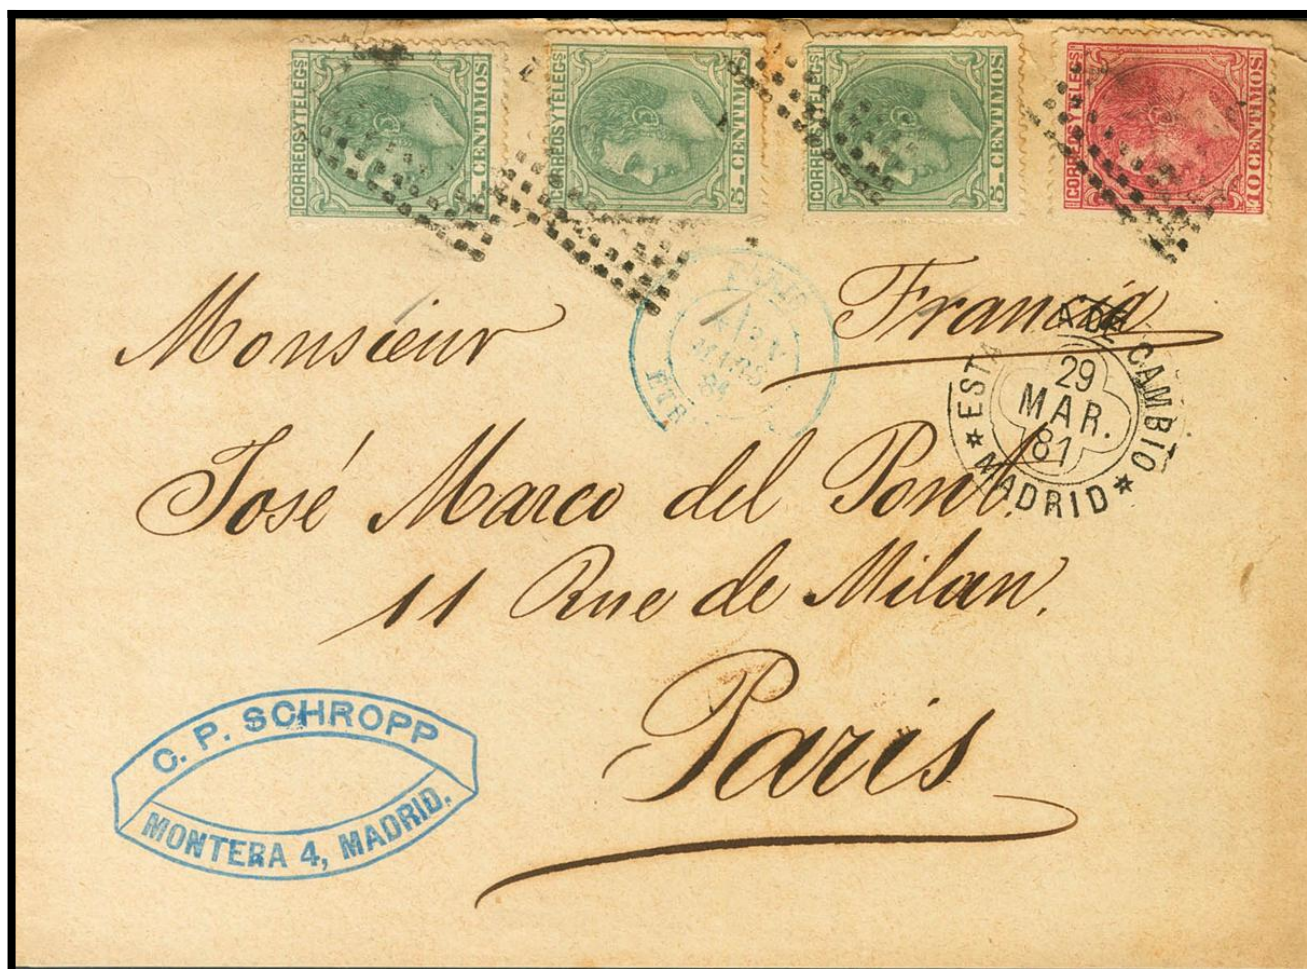 CORREOS Y TELEGS
5 CENTIMOS
CORREOS Y TELEGS
5 CENTIMOS
CORREOS Y TELEGS
5 CENTIMOS
CORREOS Y TELEGS
10 CENTIMOS
Monsieur
Francia
MARS
ETR
ESTA A DE CAMBIO
29
MAR.
81
* MADRID *
José Marco del Pont.
11 Rue de Milan.
Paris
C. P. SCHROPP
MONTERA 4, MADRID.